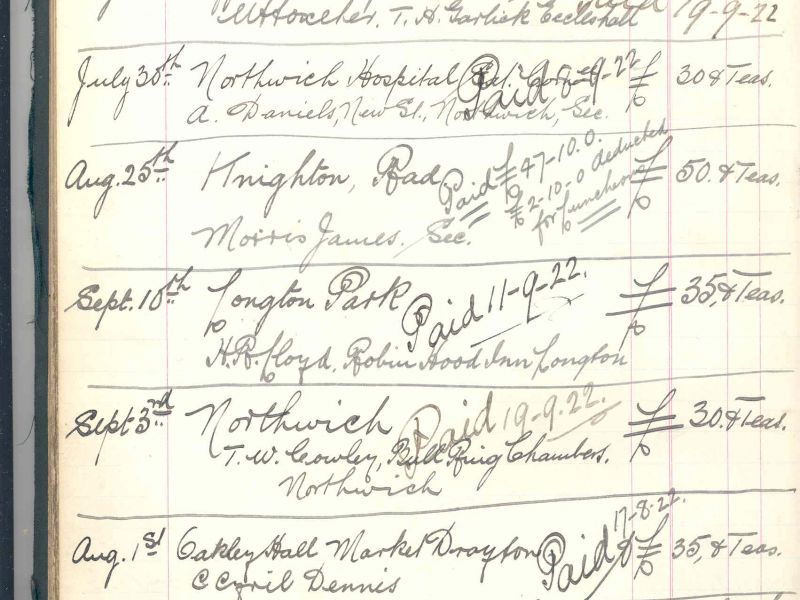 T. H. Garlick Eccleshall 19-9-22
July 30th Northwich Hospital Paid 8-9-22 £ 30 & Teas.
A. Daniels, New St., Northwich, Sec.
Aug. 25th Knighton, Rad. Paid £47-10.0. £ 50. & Teas.
£2-10-0 deducted
for Luncheons
Morris James. Sec.
Sept. 10th Longton Park Paid 11-9-22. £ 35, & Teas.
H. R. Lloyd. Robin Hood Inn Longton
Sept 3rd Northwich Paid 19-9-22. £ 30. & Teas.
T. W. Cowley, Bull Ring Chambers.
Northwich
Aug. 1st Oakley Hall Market Drayton Paid 17-8-22. £ 35, & Teas.
C Cyril Dennis